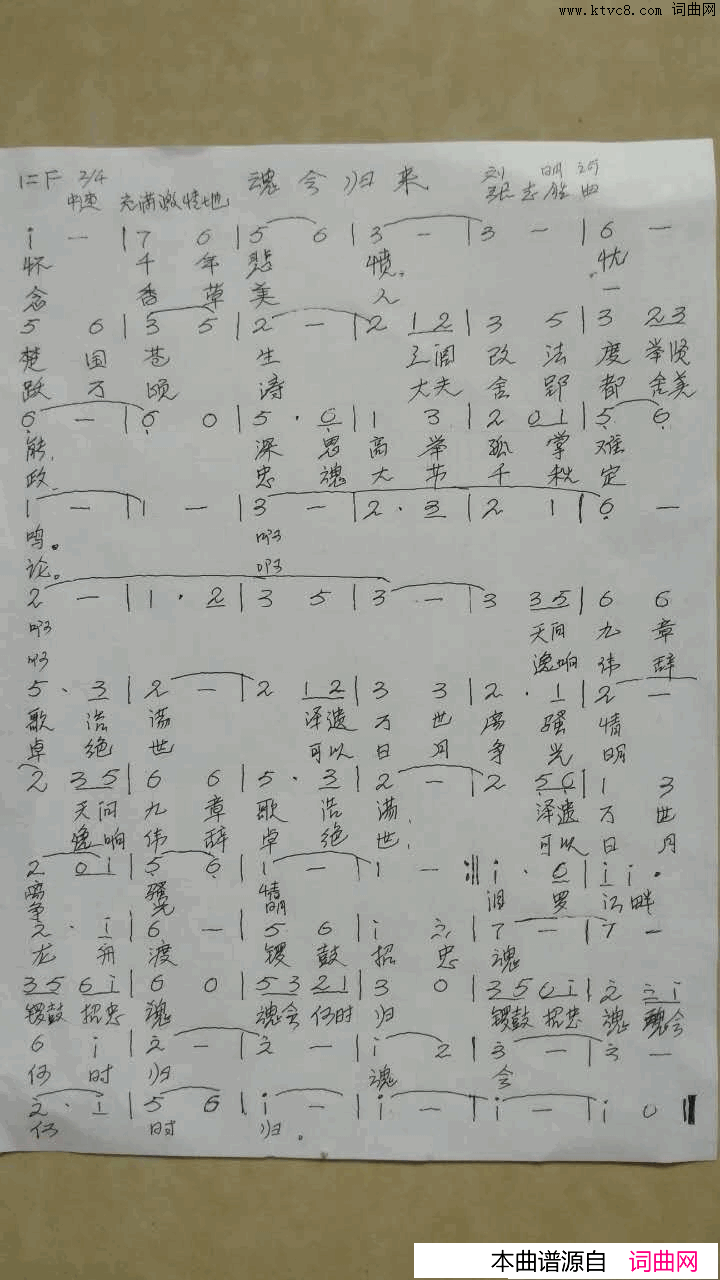 www.ktvc8.com 词曲网
1=F 2/4 魂兮归来 刘 明 词
中速 充满激情地 张志胜 曲
i — | 7 6 | 5 6 | 3 — | 3 — | 6 —
怀 千 年 悲 愤。 忧
念 香 草 美 人 一
5 6 | 3 5 | 2 — | 2 1 2 | 3 5 | 3 2 3
楚 国 苍 生 改 法 度 举贤
跃 万 顷 涛 大夫 舍 郢 都 舍美
6 — | 6 0 | 5 · 6 | 1 3 | 2 0 1 | 5 6
能, 深 思 高 举 孤 掌 难
政。 忠 魂 大 节 千 秋 定
1 — | 1 — | 3 — | 2 · 3 | 2 1 | 6 —
鸣。 啊
论。 啊
2 — | 1 · 2 | 3 5 | 3 — | 3 3 5 | 6 6
啊 天问 九 章
啊 逸响 伟 辞
5 · 3 | 2 — | 2 1 2 | 3 3 | 2 · 1 | 2 —
歌 浩 荡 泽遗 万 世 离 骚 情
卓 绝 世 可以 日 月 争 光 明
2 3 5 | 6 6 | 5 · 3 | 2 — | 2 5 6 | 1 3
天问 九 章 歌 浩 荡, 泽遗 万 世
逸响 伟 辞 卓 绝 世, 可以 日 月
2 0 1 | 5 6 | 1 — | 1 — :‖ i · 6 | i i ·
离 骚 情 汨 罗 江 畔
争 光 明
2 · i | 6 — | 5 6 | i 2 | 7 — | 7 —
龙 舟 渡 锣 鼓 招 忠 魂
3 5 6 i | 6 0 | 5 3 2 1 | 3 0 | 3 5 6 i | 2 2 i
锣鼓 招忠 魂 魂兮 何时 归 锣鼓 招忠 魂 魂兮
6 i | 2 — | 2 — | i 2 | 3 — | 3 —
何 时 归 魂 兮
2 · i | 5 6 | i — | i — | i — | i 0 ‖
何 时 归。
本曲谱源自 词曲网